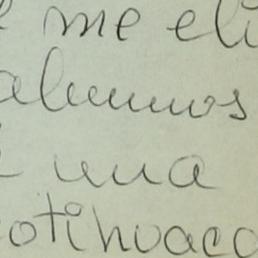 me eli
alumnos
una
otihuaca